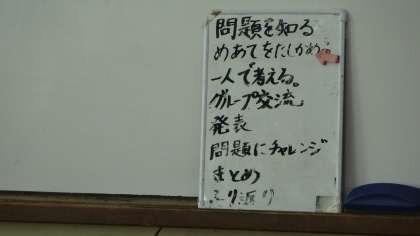 問題を知る
めあてをたしかめる。
一人で考える。
グループ交流
発表
問題にチャレンジ
まとめ
ふり返り